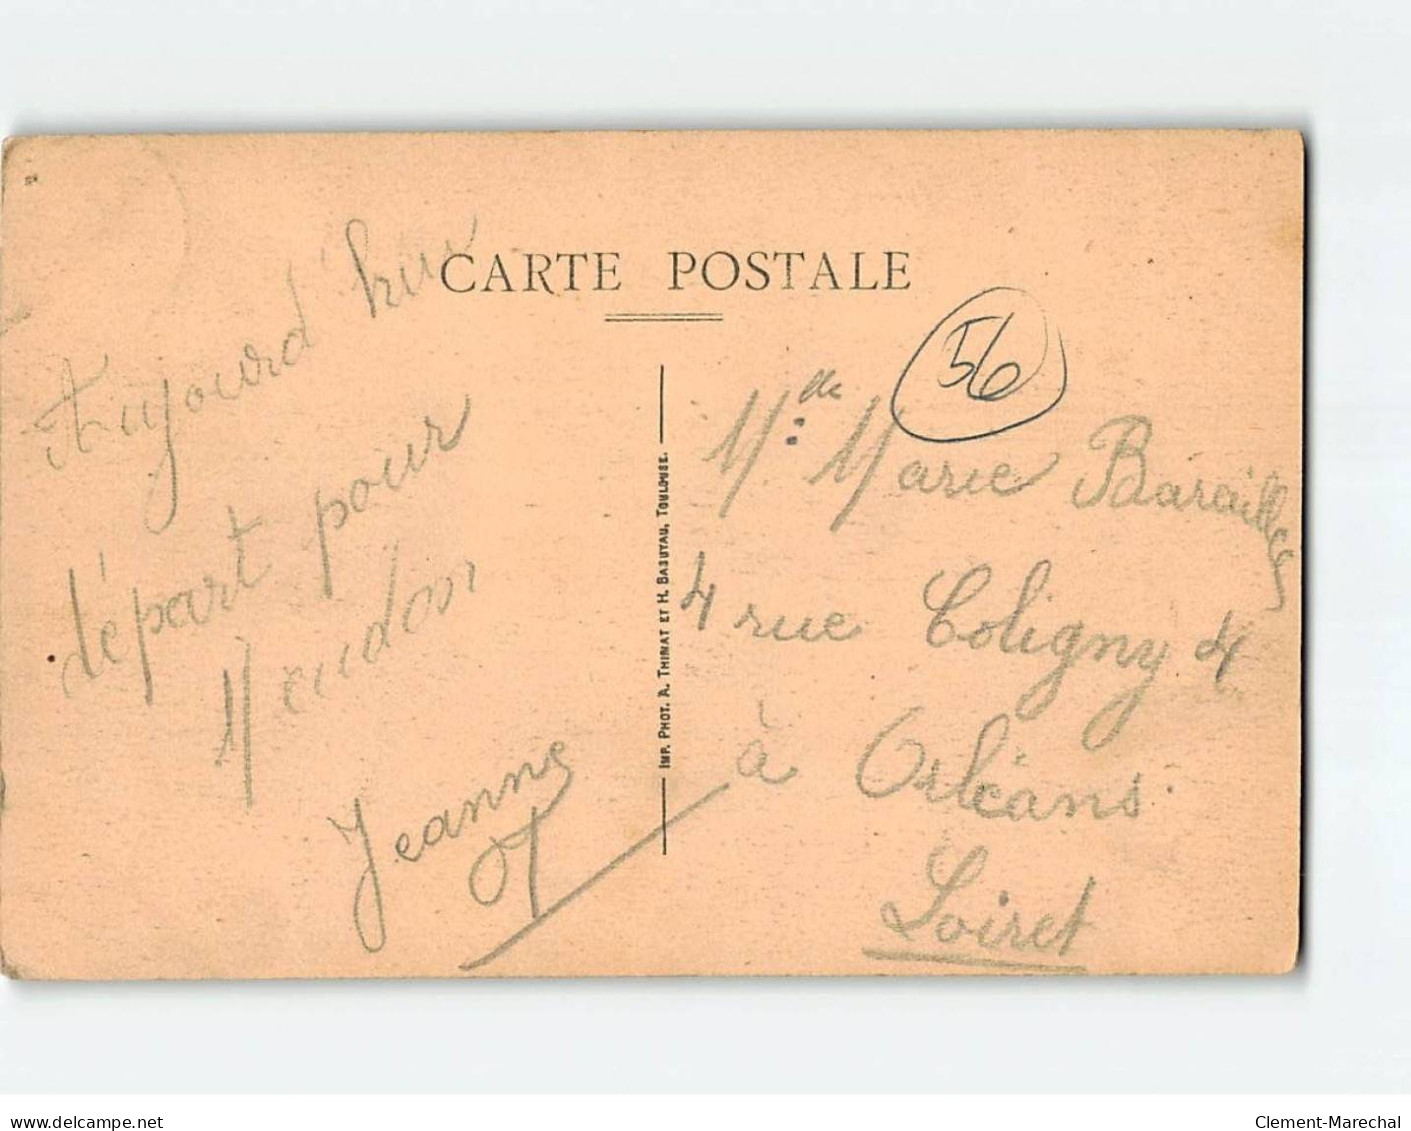 CARTE POSTALE
Aujourd'hui
départ pour
Meudon
Jeanne
IMP. PHOT. A. THIRIAT ET H. BASUYAU, TOULOUSE.
56
Mdlle Marie Barailles
4 rue Coligny 4
à Orléans
Loiret
www.delcampe.net
Clement-Marechal